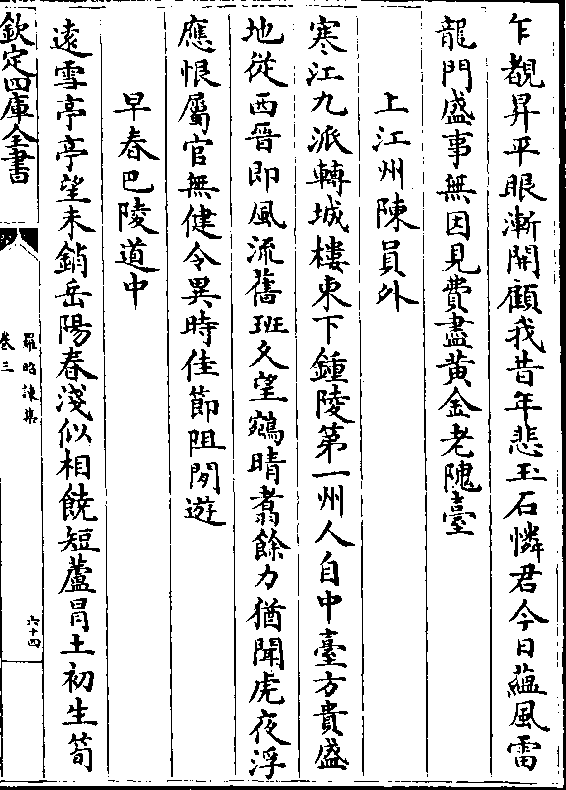 乍覩昇平眼漸開顧我昔年悲玉石憐君今日蘊風雷
龍門盛事無因見費盡黄金老隗臺
上江州陳員外
寒江九派轉城樓東下鍾陵第一州人自中臺方貴盛
地從西晉即風流舊班久望鵷晴翥餘力猶聞虎夜浮
應恨屬官無健令異時佳節阻閒遊
早春巴陵道中
遠雪亭亭望未銷岳陽春淺似相饒短蘆冒土初生筍
欽定四庫全書
羅昭諫集
卷三
六十四